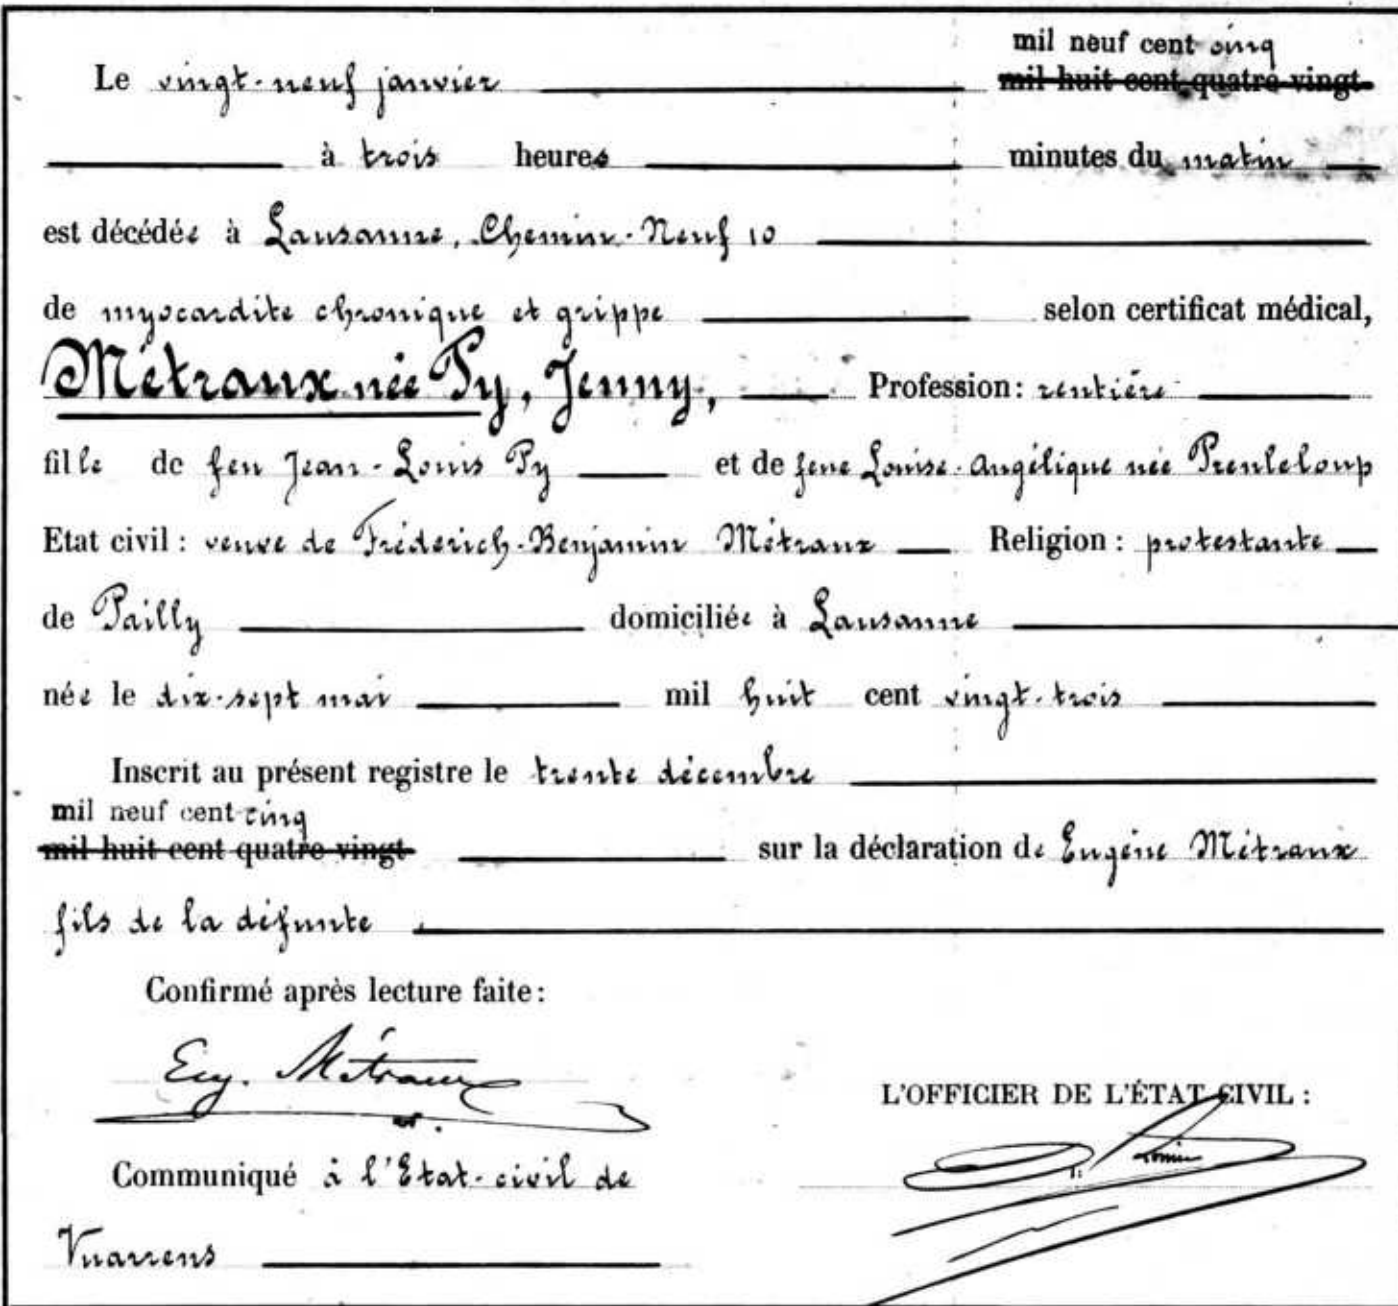 mil neuf cent cinq
Le vingt-neuf janvier mil huit cent quatre-vingt
à trois heures minutes du matin
est décédée à Lausanne, Chemin-Neuf 10
de myocardite chronique et grippe selon certificat médical,
Métraux née Py, Jenny, Profession: rentière
fille de feu Jean-Louis Py et de feue Louise-Angélique née Prenleloup
Etat civil : veuve de Fréderich-Benjamin Métraux Religion : protestante
de Pailly domiciliée à Lausanne
née le dix-sept mai mil huit cent vingt-trois
Inscrit au présent registre le trente décembre
mil neuf cent cinq
mil huit cent quatre-vingt sur la déclaration de Eugène Métraux
fils de la défunte
Confirmé après lecture faite :
Eug. Métraux
L'OFFICIER DE L'ÉTAT CIVIL :
Communiqué à l'Etat-civil de
Vuarrens